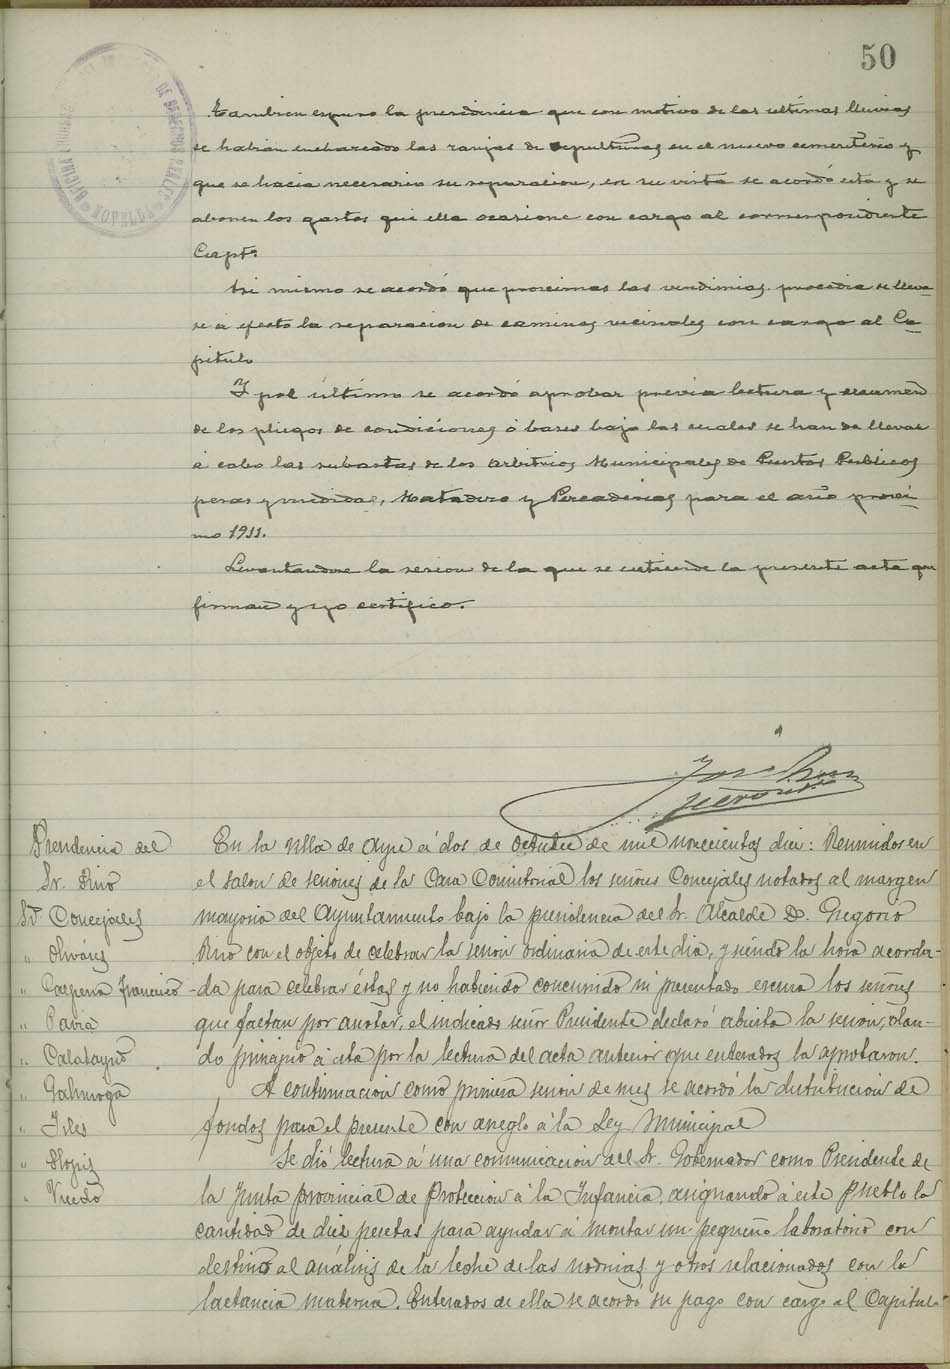 50
Tambien expuso la presidencia que con motivo de las ultimas lluvias
se habian encharcado las zanjas de sepulturas en el nuevo cementerio y
que se hacia necesario su reparacion, en su vista se acordó esta y se
abonen los gastos que ella ocasione con cargo al correspondiente
Capto.
Asi mismo se acordó que proximas las vendimias procedia se lleva-
se á efecto la reparacion de caminos vecinales con cargo al Ca-
pitulo
Y pol último se acordó aprobar previa lectura y examen
de los pliegos de condiciones ó bases bajo las cuales se han de llevar
á cabo las subastas de los Arbitrios Municipales de Puestos Publicos
pesas y medidas, Matadero y Pescaderias para el año proxi-
mo 1911.
Levantandose la sesion de la que se extiende la presente acta que
firman y yo certifico.
José
Presidencia del
Sr. Pino
Sres Concejales
" Olivares
" Gasperra Francisco
" Pavia
" Calatayud
" Galinoga
" Isles
" Llopiz
" Vicedo
En la Villa de Aspe á dos de Octubre de mil novecientos diez: Reunidos en
el salon de sesiones de la Casa Consistorial los señores Concejales notados al margen
mayoria del Ayuntamiento bajo la presidencia del Sr. Alcalde D. Gregorio
Pino con el objeto de celebrar la sesion ordinaria de este dia, y siendo la hora acorda-
-da para celebrar éstas y no habiendo concurrido ni presentado escusa los señores
que faltan por anotar, el indicado señor Presidente declaró abierta la sesion, dan-
do principio á esta por la lectura del acta anterior que enterados la aprobaron.
A continuacion como primera sesion de mes se acordó la distribucion de
fondos para el presente con arreglo á la Ley Municipal
Se dió lectura á una comunicacion del Sr. Gobernador como Presidente de
la Junta provincial de Proteccion á la Infancia, asignando á este pueblo la
cantidad de diez pesetas para ayudar á montar un pequeño laboratorio con
destino al análisis de la leche de las nodrizas y otros relacionados con la
lactancia materna. Enterados de ella se acordó su pago con cargo al Capitulo